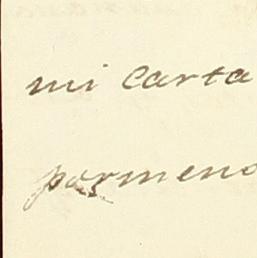 mi carta
pormeno